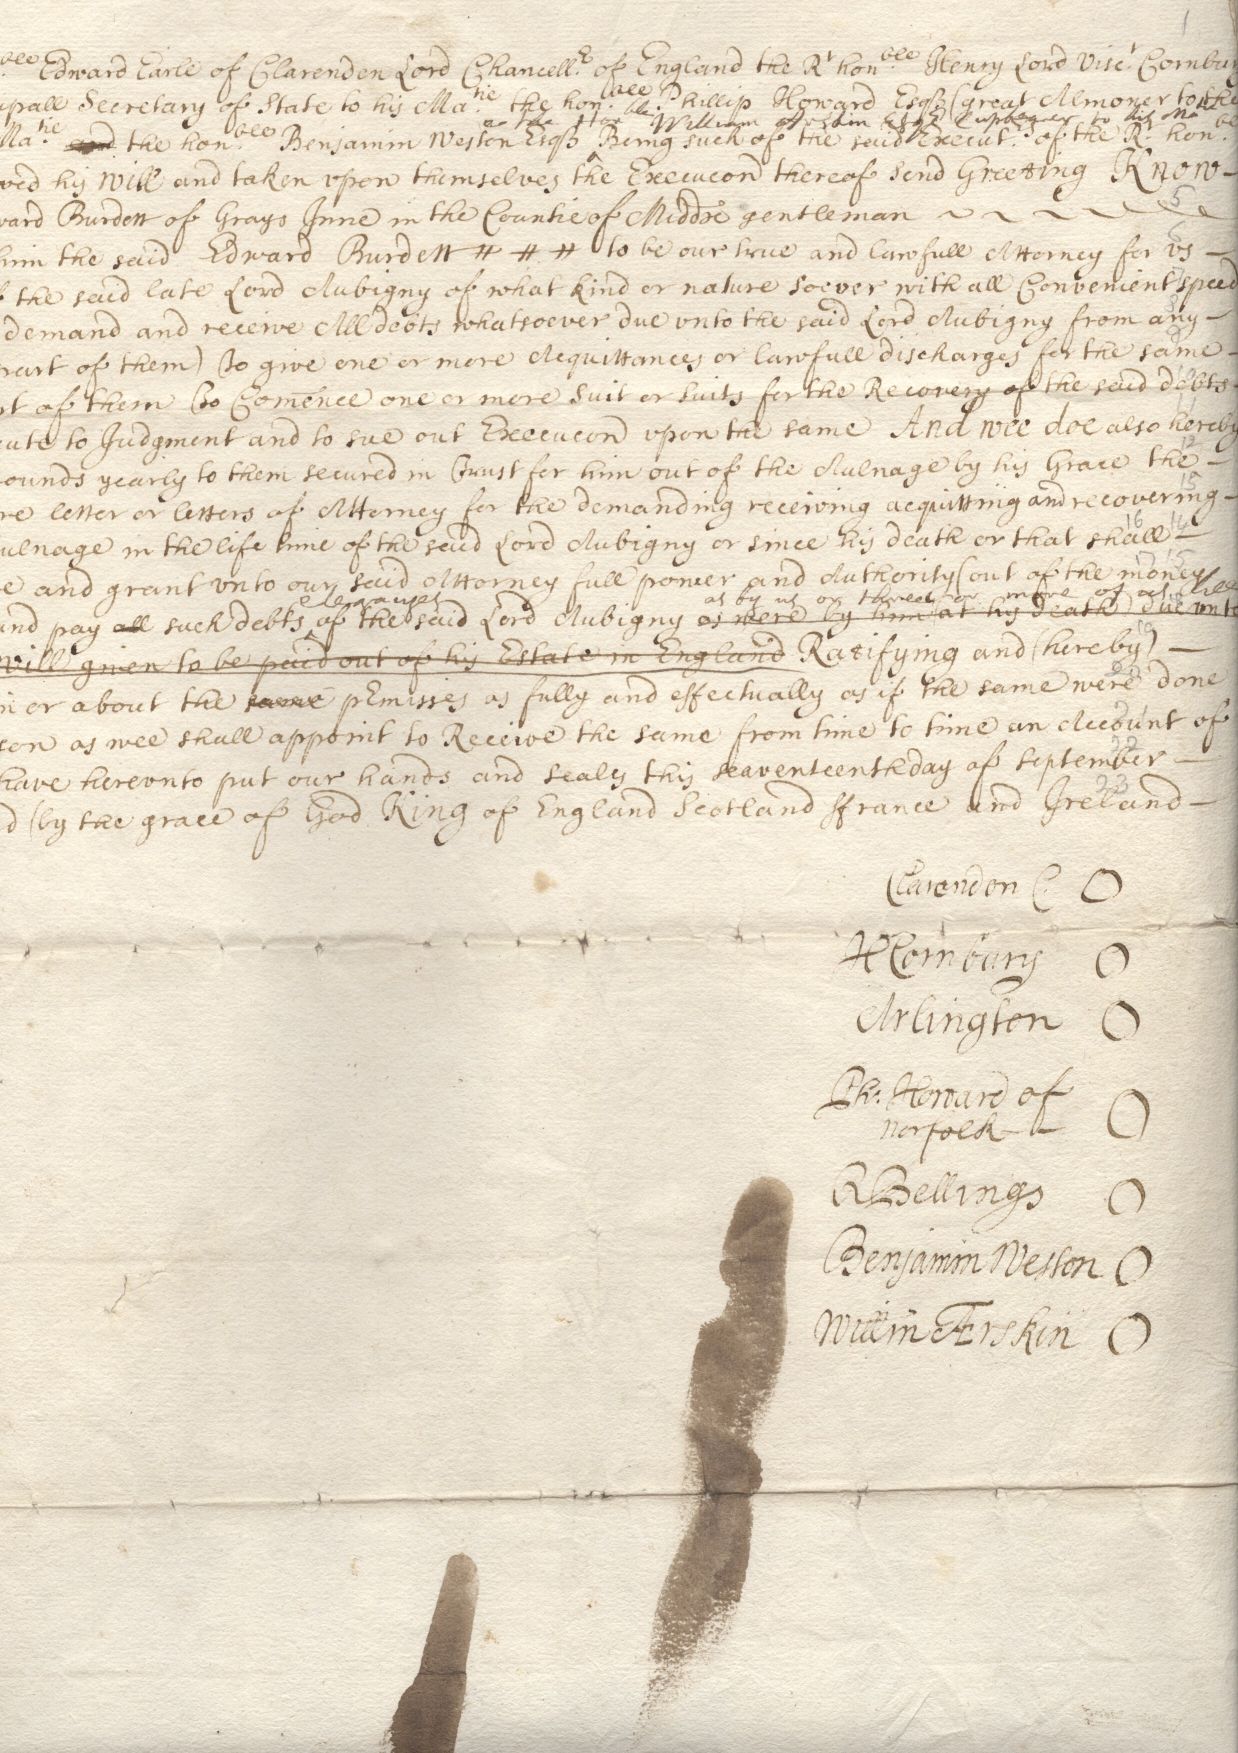 ble Edward Earle of Clarenden Lord Chancellr of England the Rt honble Henry Lord Visct Cornbury
ipall Secretary of State to his Matie the honble Phillip Howard Esqr (great Almoner to the
& the Honble William Erskin Esqr Cupbearer to his Matie
Matie and the honble Benjamin Weston Esqr Being such of the said Executrs of the Rt honble
ved his Will and taken vpon themselves the Execucon thereof Send Greeting Know
ward Burdett of Grays Inne in the Countie of Middx gentleman
him the said Edward Burdett to be our true and lawfull Attorney for vs
f the said late Lord Aubigny of what kind or nature soever with all Convenient speed
demand and receive All debts whatsoever due vnto the said Lord Aubigny from any
part of them) To give one or more Acquittances or lawfull discharges for the same
rt of them To Comence one or more Suit or Suits for the Recovery of the said debts
cute to Judgment and to sue out Execucon vpon the same And wee doe also hereby
pounds yearly to them secured in Trust for him out of the Aulnage by his Grace the
re letter or letters of Attorney for the demanding receiving acquitting and recovering
ulnage in the life time of the said Lord Aubigny or since his death or that shall
e and grant vnto our said Attorney full power and Authority (out of the money
as by us or three or more of us
and pay all such debts of the said Lord Aubigny as were by him (at his death) due vnto
Will given to be paid out of his Estate in England Ratifying and (hereby)
in or about the same pEmisses as fully and effectually as if the same were done
son as wee shall appoint to Receive the same from time to time an Account of
have herevnto put our hands and seales this seaventeenth day of September
d (by the grace of God King of England Scotland ffrance and Ireland
Clarendon C.
HCornbury
Arlington
Ph: Howard of
Norfolk
RBellings
Benjamin Weston
Willm Erskin